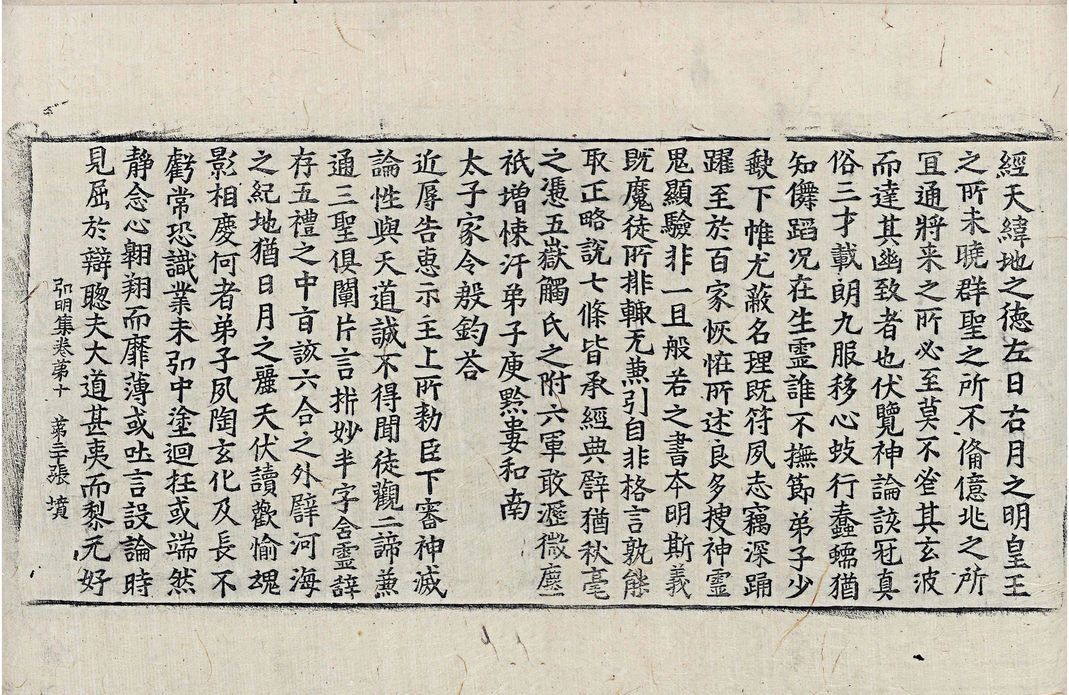 經天緯地之德左日右月之明皇王
之所未曉群聖之所不備億兆之所
冝通將来之所必至莫不㳒其玄波
而達其幽致者也伏覽神論該冠真
俗三才載朗九服移心跂行蠢蠕猶
知儛蹈况在生靈誰不撫節弟子少
歡下帷尤蔽名理既符夙志竊深踊
躍至於百家恢恠所述良多搜神靈
鬼顯驗非一且般若之書本明斯義
既魔徒所排輙无兼引自非格言孰能
取正略説七條皆承經典譬猶秋毫
之憑五嶽觸氏之附六軍敢瀝微塵
祇增悚汗弟子庾黔婁和南
太子家令殷鈞荅
近辱告惠示主上所勑臣下審神滅
論性與天道誠不得聞徒觀二諦兼
通三聖俱闡片言折妙半字含靈辞
存五禮之中旨該六合之外譬河海
之紀地猶日月之麗天伏讀歡愉魂
影相慶何者弟子夙陶玄化及長不
虧常恐識業未弘中塗迴枉或端然
静念心翱翔而靡薄或吐言設論時
見屈於辯聰夫大道甚夷而黎元好
弘明集卷苐十 苐二十張 墳